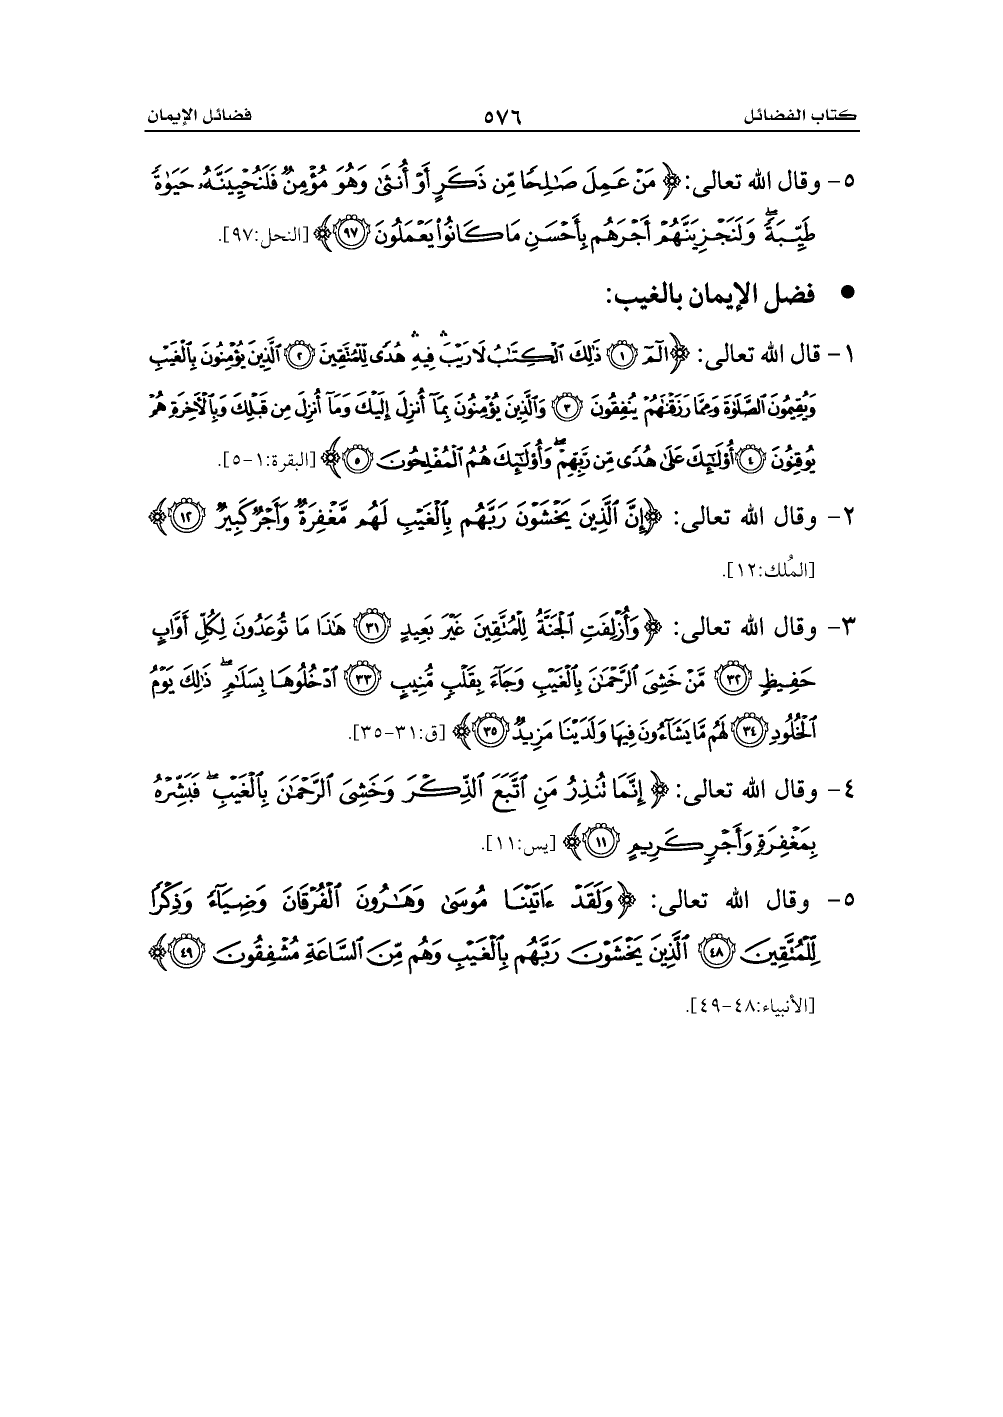 كتاب الفضائل ٥٧٦ فضائل الإيمان
٥- وقال الله تعالى: ﴿مَنْ عَمِلَ صَٰلِحًا مِّن ذَكَرٍ أَوْ أُنثَىٰ وَهُوَ مُؤْمِنٌ فَلَنُحْيِيَنَّهُۥ حَيَوٰةً
طَيِّبَةً ۖ وَلَنَجْزِيَنَّهُمْ أَجْرَهُم بِأَحْسَنِ مَا كَانُوا۟ يَعْمَلُونَ ٩٧﴾ [النحل:٩٧].
● فضل الإيمان بالغيب:
١- قال الله تعالى: ﴿الٓمٓ ١ ذَٰلِكَ ٱلْكِتَٰبُ لَا رَيْبَ ۛ فِيهِ ۛ هُدًى لِّلْمُتَّقِينَ ٢ ٱلَّذِينَ يُؤْمِنُونَ بِٱلْغَيْبِ
وَيُقِيمُونَ ٱلصَّلَوٰةَ وَمِمَّا رَزَقْنَٰهُمْ يُنفِقُونَ ٣ وَٱلَّذِينَ يُؤْمِنُونَ بِمَآ أُنزِلَ إِلَيْكَ وَمَآ أُنزِلَ مِن قَبْلِكَ وَبِٱلْءَاخِرَةِ هُمْ
يُوقِنُونَ ٤ أُو۟لَٰٓئِكَ عَلَىٰ هُدًى مِّن رَّبِّهِمْ ۖ وَأُو۟لَٰٓئِكَ هُمُ ٱلْمُفْلِحُونَ ٥﴾ [البقرة:١-٥].
٢- وقال الله تعالى: ﴿إِنَّ ٱلَّذِينَ يَخْشَوْنَ رَبَّهُم بِٱلْغَيْبِ لَهُم مَّغْفِرَةٌ وَأَجْرٌ كَبِيرٌ ١٢﴾
[المُلك:١٢].
٣- وقال الله تعالى: ﴿وَأُزْلِفَتِ ٱلْجَنَّةُ لِلْمُتَّقِينَ غَيْرَ بَعِيدٍ ٣١ هَٰذَا مَا تُوعَدُونَ لِكُلِّ أَوَّابٍ
حَفِيظٍ ٣٢ مَّنْ خَشِىَ ٱلرَّحْمَٰنَ بِٱلْغَيْبِ وَجَآءَ بِقَلْبٍ مُّنِيبٍ ٣٣ ٱدْخُلُوهَا بِسَلَٰمٍ ۖ ذَٰلِكَ يَوْمُ
ٱلْخُلُودِ ٣٤ لَهُم مَّا يَشَآءُونَ فِيهَا وَلَدَيْنَا مَزِيدٌ ٣٥﴾ [ق:٣١-٣٥].
٤- وقال الله تعالى: ﴿إِنَّمَا تُنذِرُ مَنِ ٱتَّبَعَ ٱلذِّكْرَ وَخَشِىَ ٱلرَّحْمَٰنَ بِٱلْغَيْبِ ۖ فَبَشِّرْهُ
بِمَغْفِرَةٍ وَأَجْرٍ كَرِيمٍ ١١﴾ [يس:١١].
٥- وقال الله تعالى: ﴿وَلَقَدْ ءَاتَيْنَا مُوسَىٰ وَهَٰرُونَ ٱلْفُرْقَانَ وَضِيَآءً وَذِكْرًا
لِّلْمُتَّقِينَ ٤٨ ٱلَّذِينَ يَخْشَوْنَ رَبَّهُم بِٱلْغَيْبِ وَهُم مِّنَ ٱلسَّاعَةِ مُشْفِقُونَ ٤٩﴾
[الأنبياء:٤٨-٤٩].